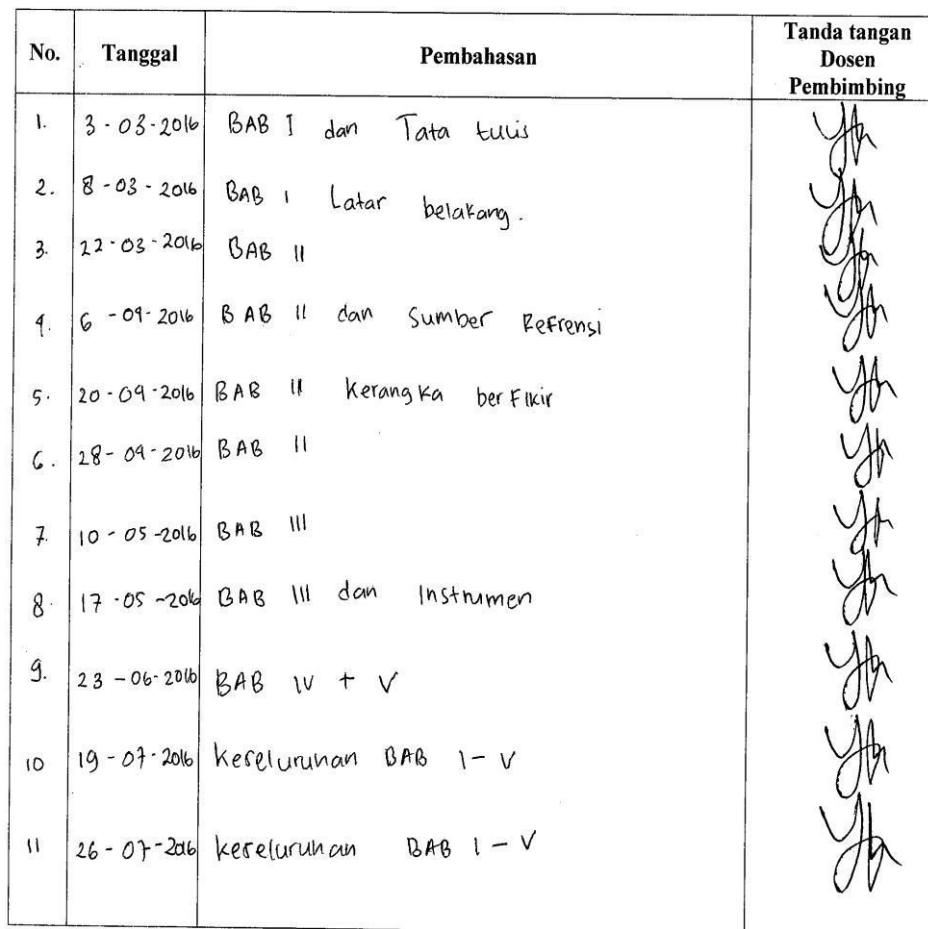 No. Tanggal Pembahasan Tanda tangan
Dosen
Pembimbing
1. 3-03-2016 BAB I dan Tata tulis
2. 8-03-2016 BAB I Latar belakang.
3. 22-03-2016 BAB II
4. 6-04-2016 BAB II dan Sumber Refrensi
5. 20-04-2016 BAB II Kerangka berfikir
6. 28-04-2016 BAB II
7. 10-05-2016 BAB III
8. 17-05-2016 BAB III dan Instrumen
9. 23-06-2016 BAB IV + V
10 19-07-2016 Keseluruhan BAB I-V
11 26-07-2016 keseluruhan BAB I-V